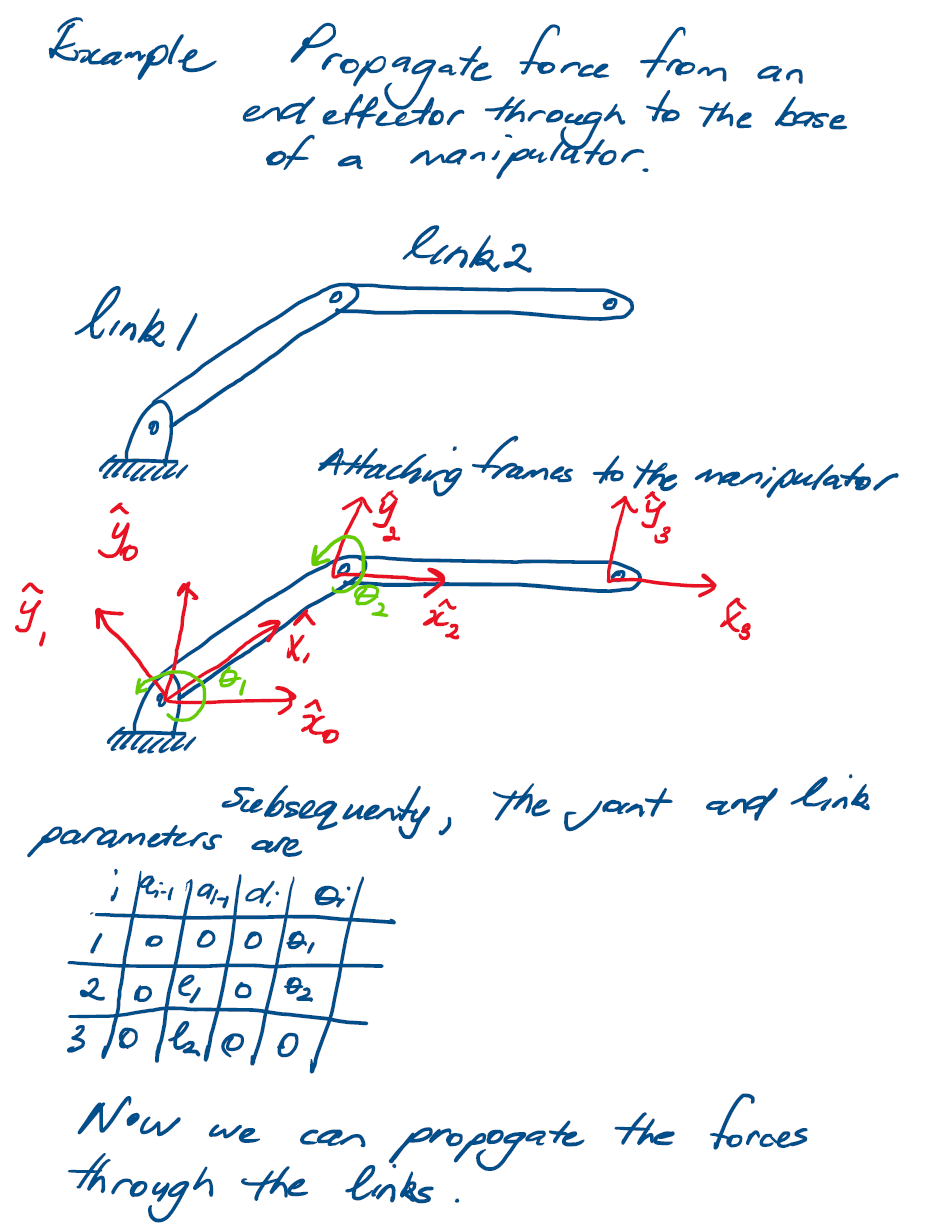 Example Propagate force from an
end effector through to the base
of a manipulator.
link 2
link 1
Attaching frames to the manipulator
ŷ₀
ŷ₂
ŷ₃
ŷ₁
x̂₁
θ₂
x̂₂
x̂₃
θ₁
x̂₀
Subsequenty, the joint and link
parameters are
i | α i-1 | a i-1 | d i | θ i
1 | 0 | 0 | 0 | θ₁
2 | 0 | l₁ | 0 | θ₂
3 | 0 | l₂ | 0 | 0
Now we can propogate the forces
through the links.